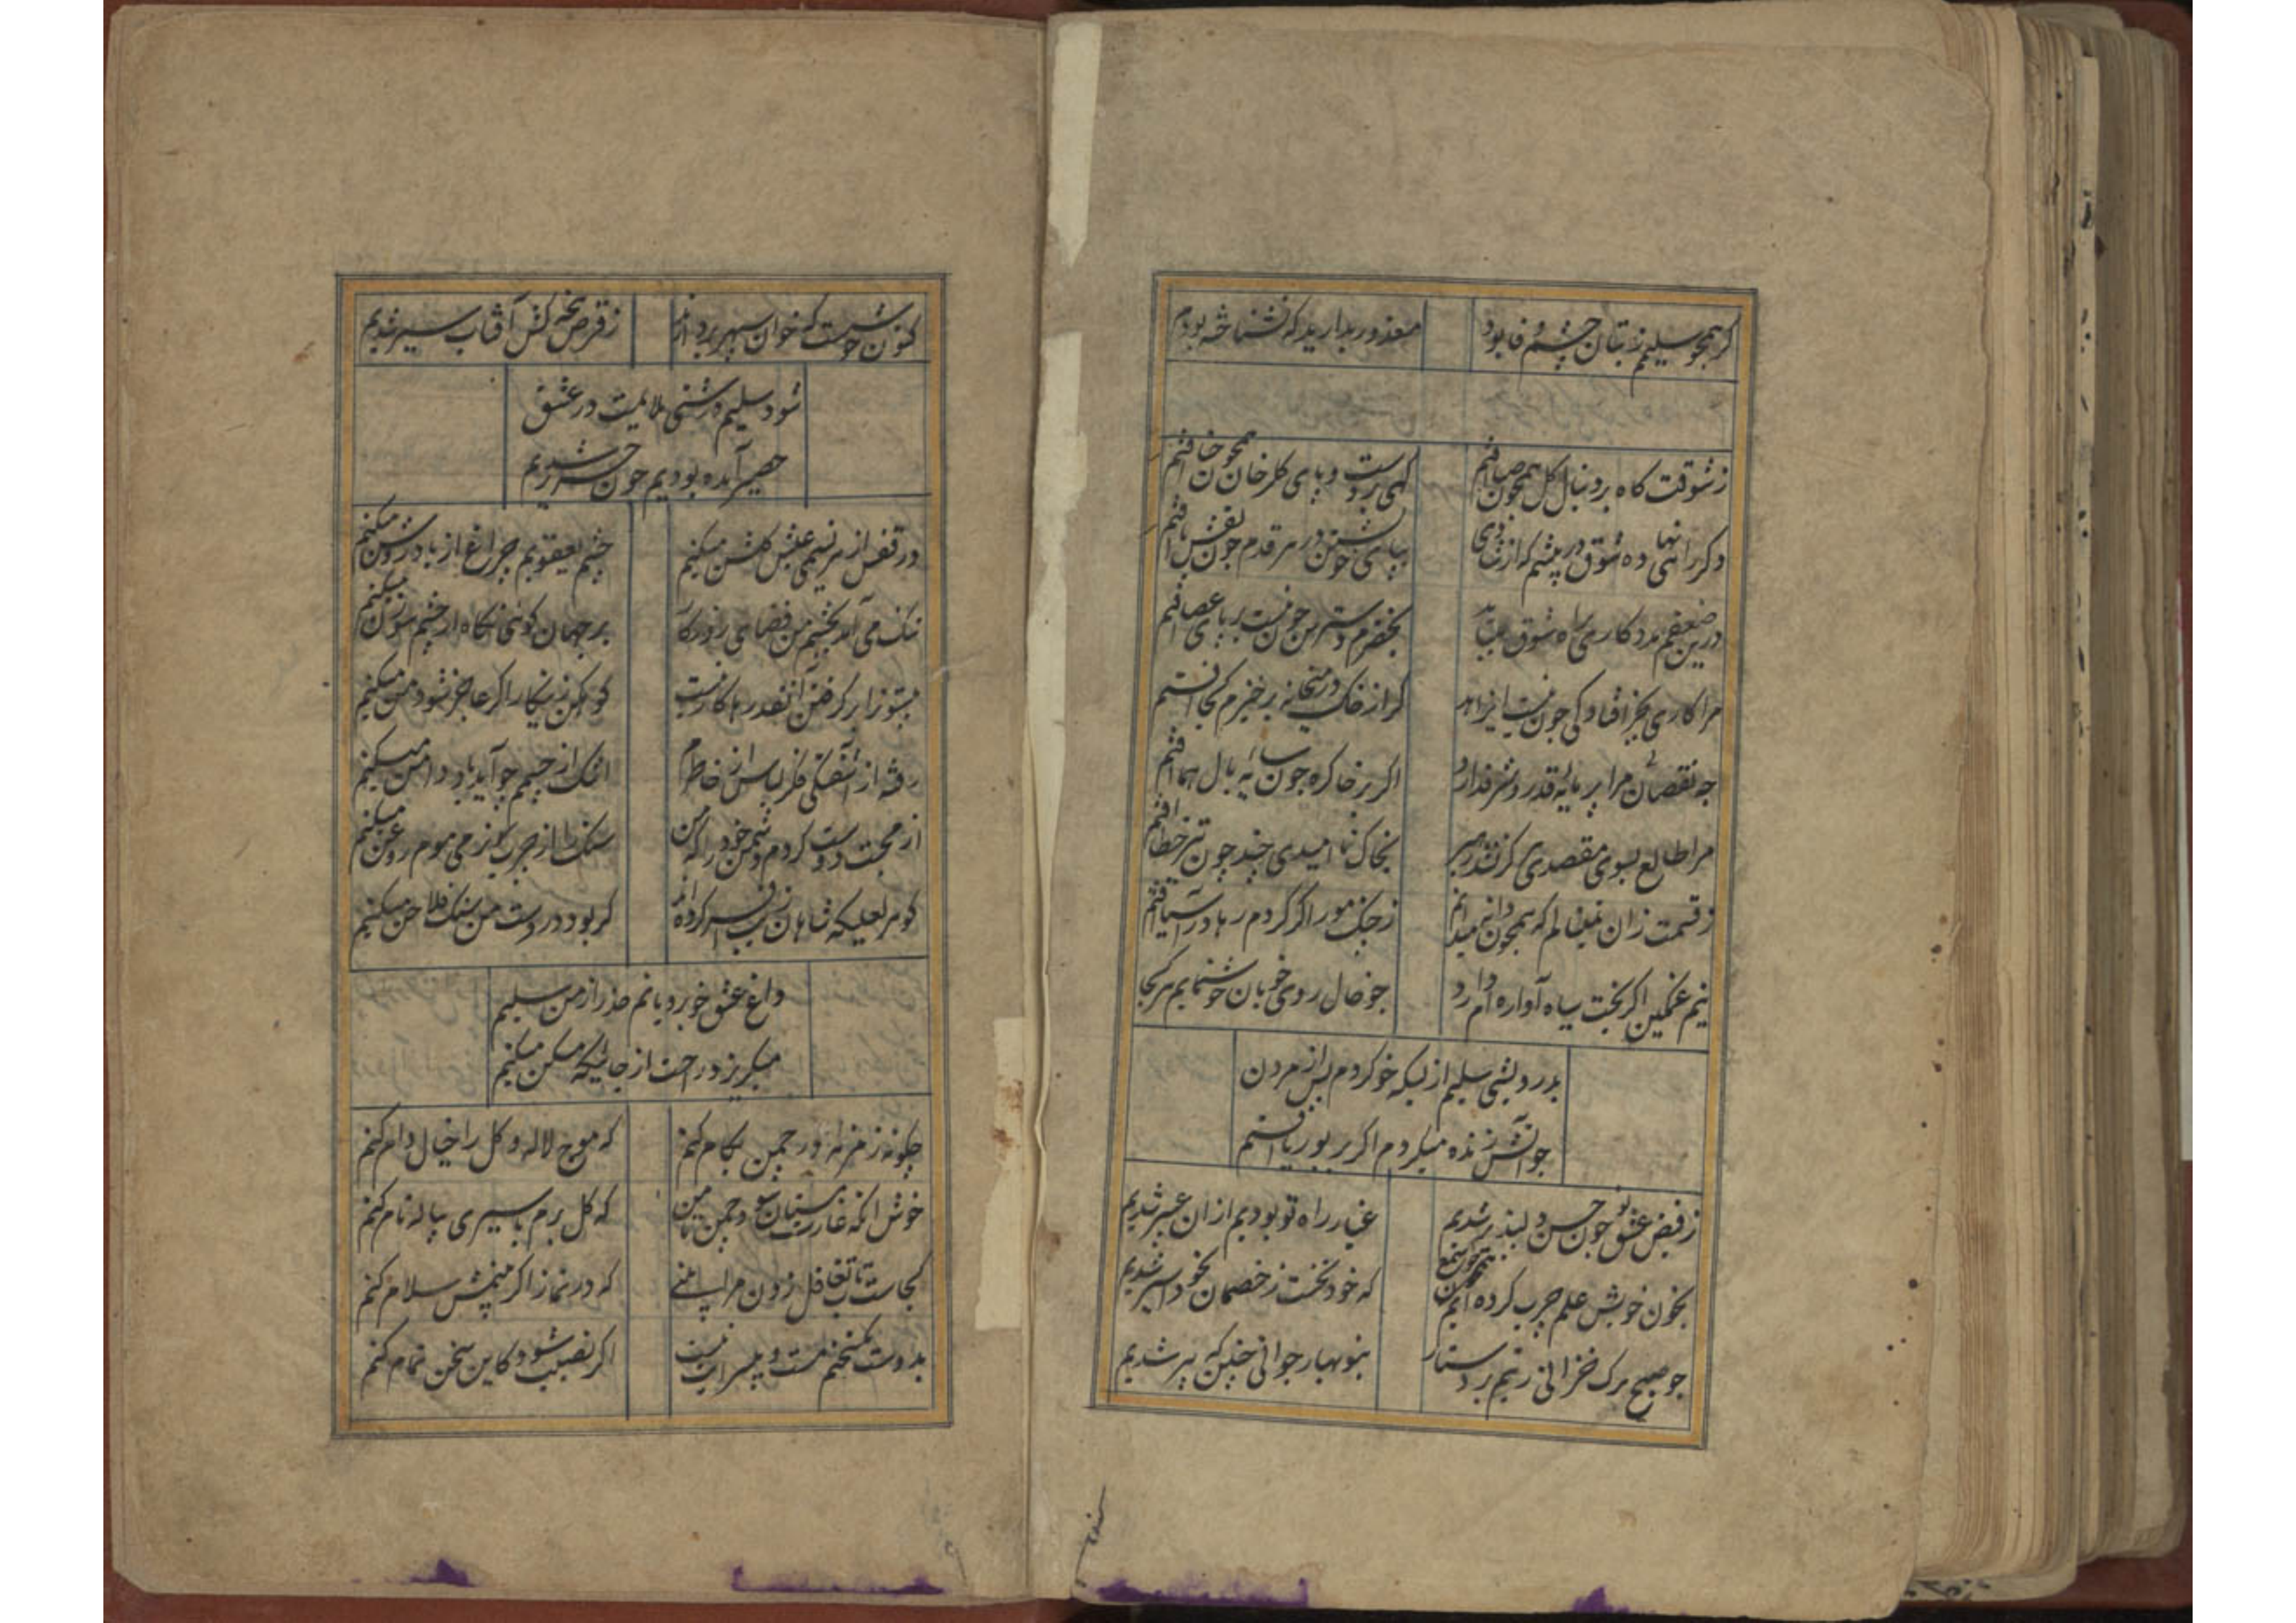 کر همچو سلیمم ز بتان چشم وفا بود معذور بدارید که نشناخته بودم
ز شوقت کاه بر دنبال کل همچون صبا افتم کهی بر دست و پای کلرخان همچون حنا افتم
دکر راهی نهاده شوق در پیشم که از شادی بپای خویشتن در هر قدم چون نقش پا افتم
درین ضعفم مددکاری براه شوق میباید بخضرم دسترس چون نیست بر پای عصا افتم
مرا کاری بجز افتادکی چون نیست ای زاهد کر از خاک در میخانه برخیزم کجا افتم
چه نقصان مرا پر مایه قدر و شرف دارد اکر بر خاک ره چون سایه بال هما افتم
مرا طالع بسوی مقصدی کر نیست رهبر بخاک ناامیدی چند چون تیر خطا افتم
ز قسمت زان نمینالم که همچون دانه میدانم ز چنک مور اکر کردم رها در آسیا افتم
نیم غمکین اکر بخت سیاه آواره ام دارد چو خال روی خوبان خوشنمایم هر کجا
بدرویشی سلیم از بسکه خو کردم پس از مردن
چو آتش زنده میکردم اکر بر بوریا افتم
ز فیض عشق تو چون حسن دلپذیر شدیم غبار راه تو بودیم از ان عبیر شدیم
بخون خویش علم چرب کرده ایم چون شمع که خود نخست ز خصمان بخود دلیر شدیم
چو صبح برک خزانی زنیم بر دستار بنوبهار جوانی چنین که پیر شدیم
کنون خوشست که خوان سپهر بردارند ز قرص پخته کش آفتاب سیر شدیم
شود سلیم درشتی ملایمت در عشق
حصیر آمده بودیم چون حریر شدیم
در قفس از هر نسیمی عیش کلشن میکنم چشم یعقوبم چراغ از باد روشن میکنم
تنک می آید بچشم من فضای روزکار بر جهان کوئی نکاه از چشم سوزن میکنم
بیستون را برکرفتن آنقدرها کار نیست کوهکن زینکار اکر عاجز شود من میکنم
رفته از آشفتکی فکر لباس از خاطرم اشک از چشمم چو آید یاد دامن میکنم
از محبت دوست کردم دشمن خود را که من سنک را از چرب نرمی موم روغن میکنم
کوهر لعلیکه شاهان زیب افسر کرده اند کر بود در دست من سنک فلاخن میکنم
داغ عشق خوبرویانم حذر از من سلیم
میکریزد راحت از جائیکه مسکن میکنم
چکونه زمزمه در چمن بکام کنم که موج لاله و کل را خیال دام کنم
خوش آنکه غارت بستان و چمن که کل برم باسیری پیاله نام کنم
کجاست تاب تغافل زدن مرا که در نماز اکر بینمش سلام کنم
بدوست سخنم هست و نیست اکر نصیب شود کاین سخن تمام کنم